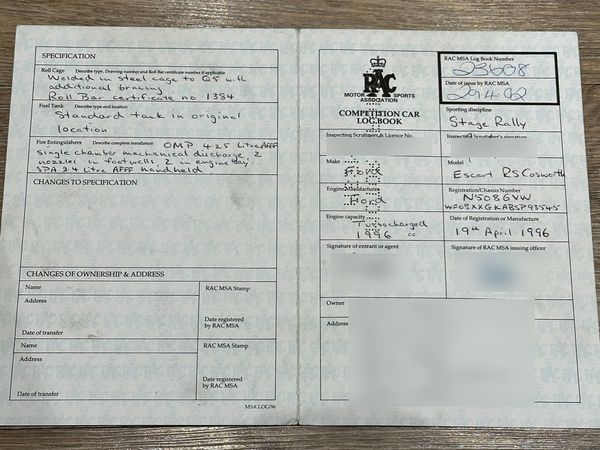 SPECIFICATION
Roll Cage Describe type, Drawing number and Roll Bar certificate number if applicable
Welded in steel cage to Q5 with
additional bracing
Roll Bar certificate no 1384
Fuel Tank Describe type and location
Standard tank in original
location
Fire Extinguishers Describe complete installation OMP 4.25 Litre AFFF
single chamber mechanical discharge, 2
nozzles in footwells 2 in engine bay.
SPA 2.4 Litre AFFF handheld
CHANGES TO SPECIFICATION
CHANGES OF OWNERSHIP & ADDRESS
Name RAC MSA Stamp
Address
Date registered
by RAC MSA
Date of transfer
Name RAC MSA Stamp
Address
Date registered
by RAC MSA
Date of transfer
MSA LOG/96
RAC
MOTOR SPORTS
ASSOCIATION
COMPETITION CAR
LOG BOOK
RAC MSA Log Book Number
23608
Date of issue by RAC MSA
Sporting discipline
Stage Rally
Inspecting Scrutineer & Licence No.
Inspecting Scrutineer's signature
Make
Ford
Model
Escort RS Cosworth
Engine Manufacturer
Ford
Registration/Chassis Number
N508GVW
Engine capacity
Turbocharged
1996 cc
Date of Registration or Manufacture
19th April 1996
Signature of entrant or agent
Signature of RAC MSA issuing officer
Owner
Address